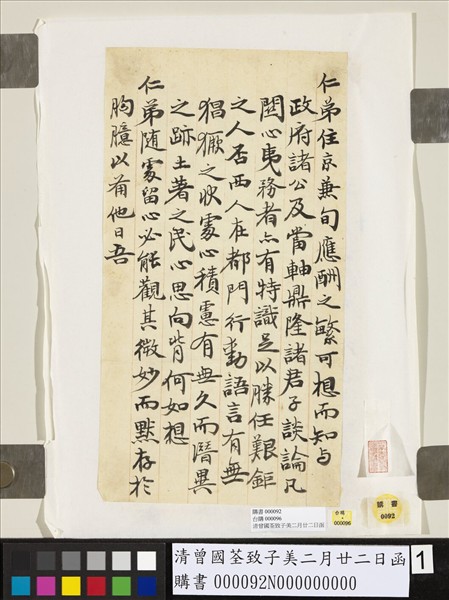 仁弟住京兼旬應酬之繁可想而知与
政府諸公及當軸鼎隆諸君子談論凡
関心夷務者亦有特識足以勝任艱鉅
之人否西人在都門行動語言有無
猖獗之状處心積慮有無久而潛異
之跡土著之民心思向背何如想
仁弟随處留心必能觀其微妙而默存於
胸臆以備他日吾
購書 000092
台購 000096
清曾國荃致子美二月廿二日函
台購
000096
購書
0092
清曾國荃致子美二月廿二日函
購書 000092N000000000
1